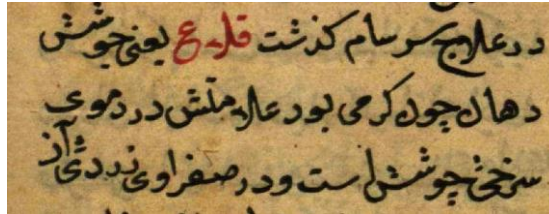 در علاج سرسام کذشت قلاع یعنی جوشش
دهان چون کرمی بود علامتش در دموی
سرخی جوشش است و در صفراوی زردی آن